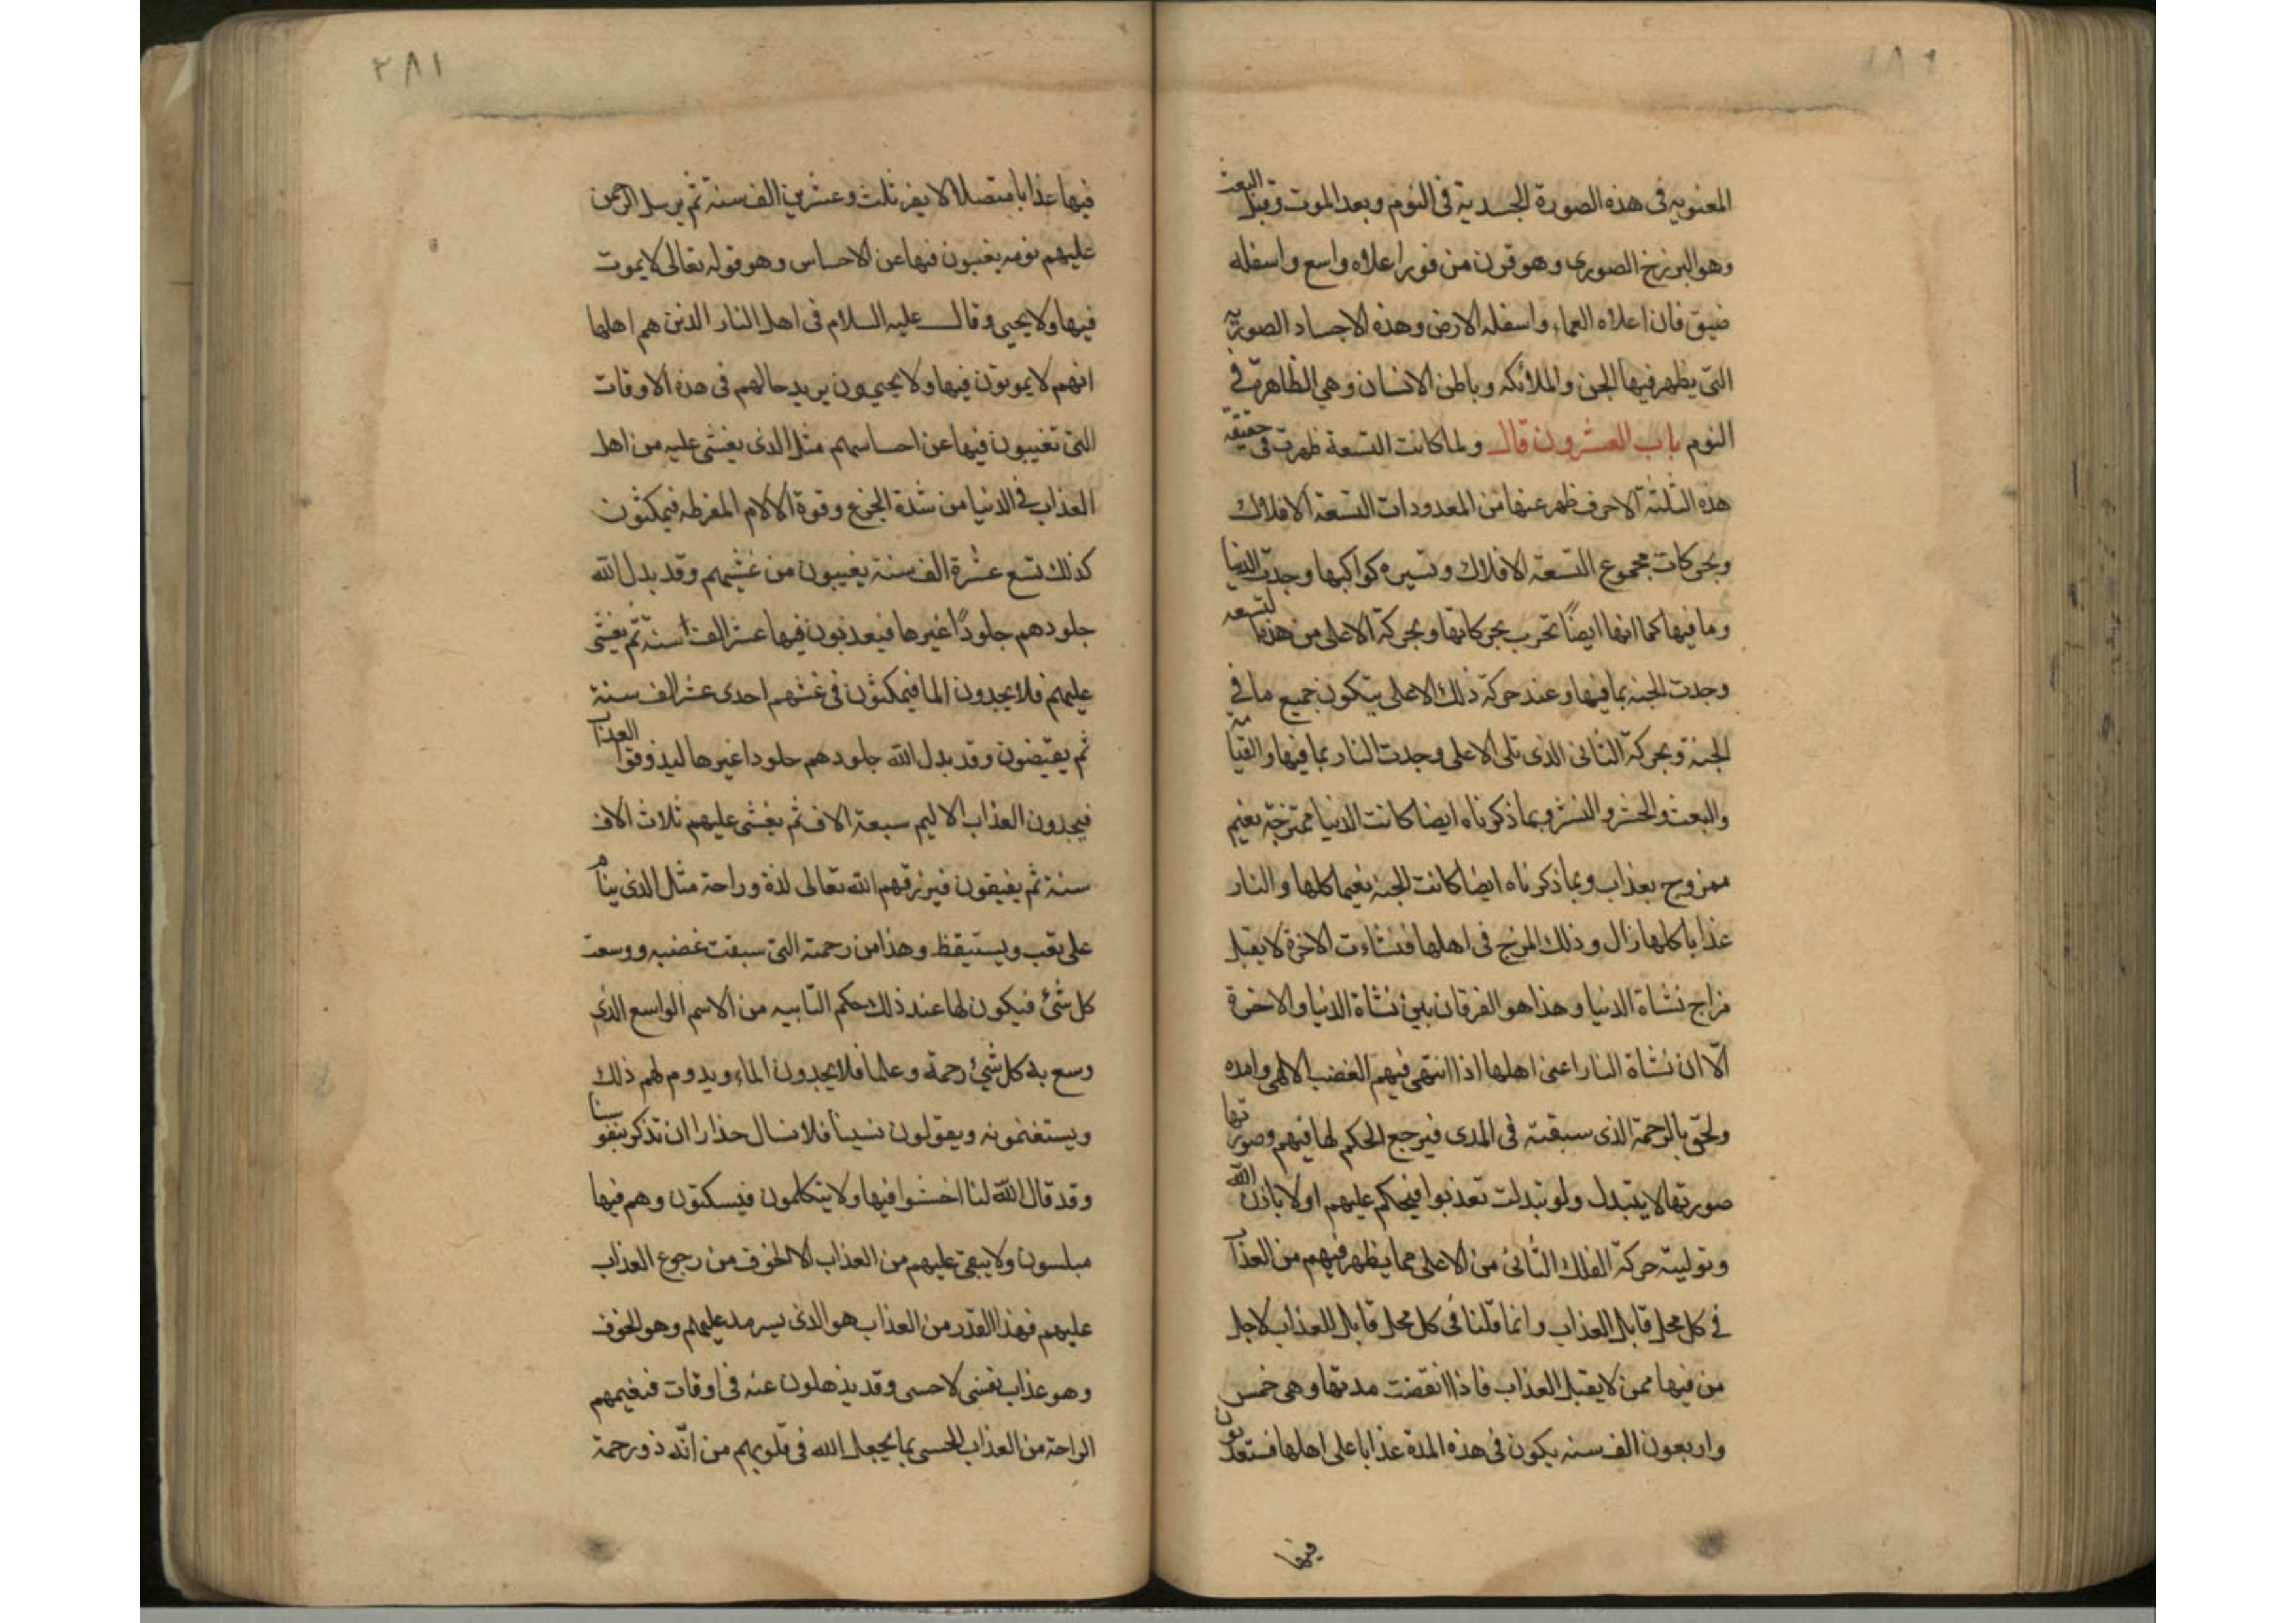 المعنويه فى هذه الصورة الجسديّة فى النوم وبعد الموت وقبل البعث
وهو البرزخ الصورى وهو قرن من نور اعلاه واسع واسفله
ضيق فان اعلاه العماء واسفله الارض وهذه الاجساد الصوريّه
التى يظهر فيها الجن والملائكه وباطن الانسان وهى الظاهرة فى
النوم باب العشرون قال ولما كانت التسعة ظهرت فى حقيقه
هذه الثلثة الاحرف ظهر عنها من المعدودات التسعة الافلاك
وبحركات مجموع التسعة الافلاك وتسيره كواكبها وجدت الدنيا
وما فيها كما انها ايضًا تخرب بحركاتها وبحركة الاعلى من هذه التسعه
وجدت الجنه بما فيها وعند حركة ذلك الاعلى يتكون جميع ما فى
الجنة وبحركة الثانى الذى تلى الاعلى وجدت النار بما فيها والقيامه
والبعث والحشر والنشر وبما ذكرناه ايضا كانت الدنيا ممتزجة نعيم
ممزوج بعذاب وبما ذكرناه ايضا كانت الجنه نعيما كلها والنار
عذابا كلها زال وذلك المزج فى اهلها فنشاءت الاخرة لا يقبل
مزاج نشاة الدنيا وهذا هو الفرقان بين نشاة الدنيا والاخرة
الّا ان نشاة النار اعنى اهلها اذا انتهى فيهم الغضب الالهى وامده
ولحق بالرحمة الذى سبقته فى المدى فيرجع الحكم لها فيهم وصورتها
صورتها لا يتبدل ولو تبدلت تعذبوا فيحكم عليهم اولا باذن الله
وتوليته حركة الفلك الثانى من الاعلى مما يظهر فيهم من العذاب
فى كل محل قابل العذاب وانما قلنا فى كل محل قابل للعذاب لاجل
من فيها ممن لا يقبل العذاب فاذا انقضت مدتها وهى خمس
واربعون الف سنه يكون فى هذه المدة عذابا على اهلها فستعذبون
فيها
٢٨١
فيها عذابا متصلا لا يفر ثلث وعشرين الف سنة ثم يرسل الرحمن
عليهم نومه يغيبون فيها عن الاحساس وهو قوله تعالى لا يموت
فيها ولا يحيى وقال عليه السلام فى اهل النار الذين هم اهلها
انهم لا يموتون فيها ولا يحييون يريد حالهم فى هذه الاوقات
التى تغيبون فيها عن احساسهم مثل الذى يغشى عليه من اهل
العذاب فى الدنيا من شدة الجزع وقوة الالام المفرطه فيمكثون
كذلك تسع عشرة الف سنة يغيبون من غشيهم وقد بدل الله
جلودهم جلودًا غيرها فيعذبون فيها عشر الف سنة ثم يغشى
عليهم فلا يجدون الما فيمكثون فى غشهم احدى عشر الف سنة
ثم يقيضون وقد بدل الله جلودهم جلودا غيرها ليذوقوا العذاب
فيجدون العذاب الاليم سبعة الاف ثم يغشى عليهم ثلاث الاف
سنة ثم يفيقون فيرزقهم الله تعالى لذة وراحة مثل الذى ينام
على تعب ويستيقظ وهذا من رحمته التى سبقت غضبه ووسعت
كل شئ فيكون لها عند ذلك حكم التابيه من الاسم الواسع الذى
وسع به كل شئ رحمة وعلما فلا يجدون الماء ويدوم لهم ذلك
ويستغنمونه ويقولون نسينا فلا نسال حذارا ان تذكر بنفوسنا
وقد قال الله لنا اخسئوا فيها ولا يتكلمون فيسكتون وهم فيها
مبلسون ولا يبقى عليهم من العذاب الا الخوف من رجوع العذاب
عليهم فهذا القدر من العذاب هو الذى يسرمد عليهم وهو الخوف
وهو عذاب نفسى لا حسى وقد يذهلون عنه فى اوقات فنعيمهم
الراحة من العذاب الحسى بما يجعل الله فى قلوبهم من انّه ذو رحمة